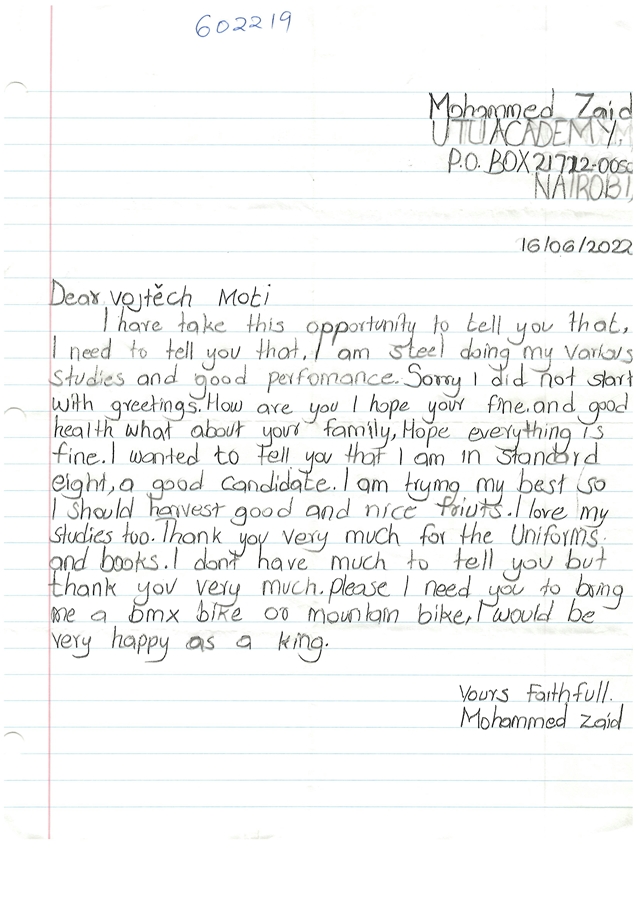 602219
Mohammed Zaid
UTU ACADEMY,
P.O. BOX 21712-0050
NAIROBI,
16/06/2022
Dear Vojtěch Moti
I have take this opportunity to tell you that,
I need to tell you that, I am steel doing my various
studies and good perfomance. Sorry I did not start
with greetings. How are you I hope your fine. and good
health what about your family, Hope everything is
fine. I wanted to tell you that I am in standard
eight, a good candidate. I am trying my best so
I should harvest good and nice friuts. I love my
studies too. Thank you very much for the Uniforms
and books. I don't have much to tell you but
thank you very much. please I need you to bring
me a bmx bike or mountain bike, I would be
very happy as a king.
Yours Faithfull.
Mohammed Zaid